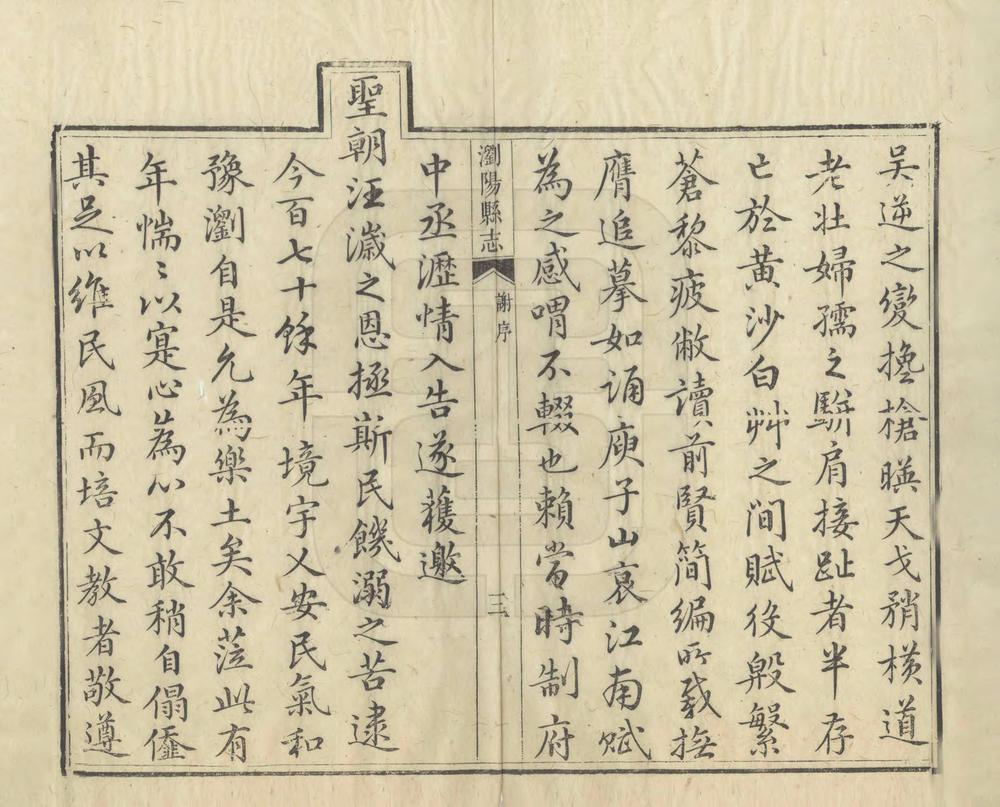 吳逆之變攙槍暎天戈矟橫道
老壯婦孺之駢肩接趾者半存
亡於黃沙白艸之間賦役殷繁
蒼黎疲敝讀前賢簡編所載撫
膺追摹如誦庾子山哀江南賦
為之感喟不輟也賴當時制府
瀏陽縣志
謝序
三
中丞瀝情入告遂蒦邀
聖朝汪濊之恩拯斯民饑溺之苦逮
今百七十餘年境宇乂安民氣和
豫瀏自是允為樂土矣余蒞此有
年惴〻以寔心為心不敢稍自偈儘
其足以維民風而培文教者敬遵